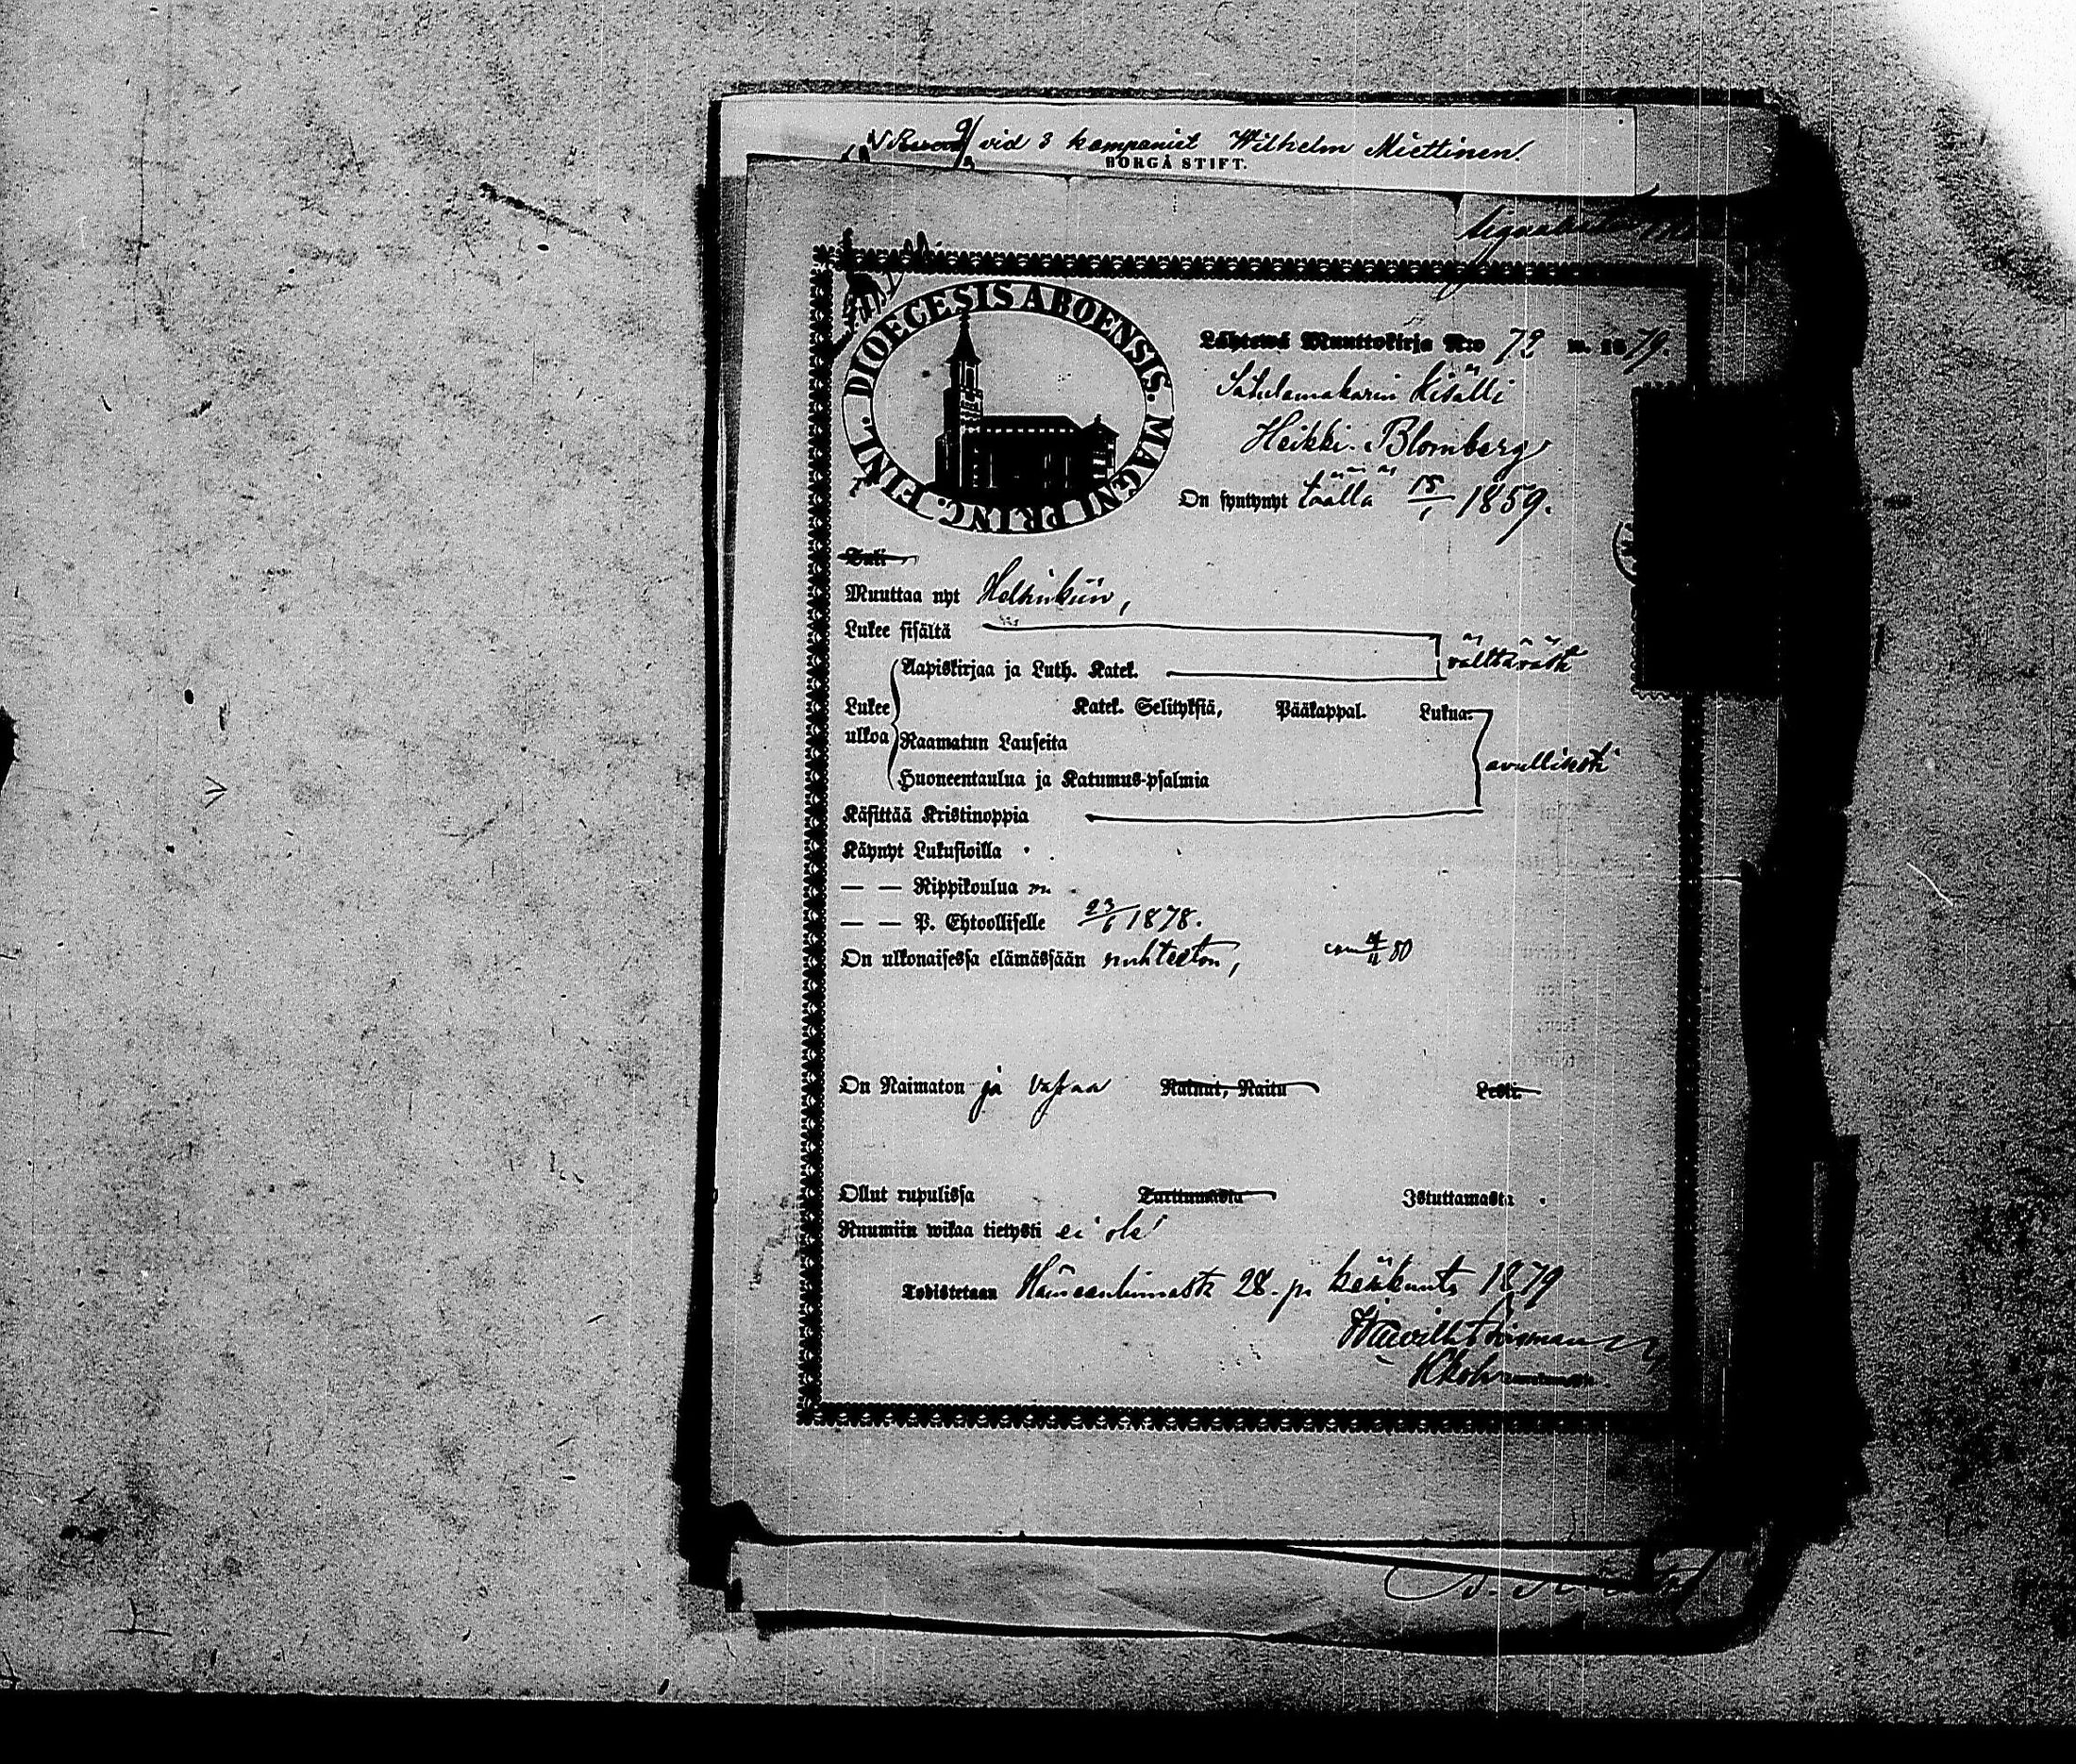 vid 3 kompaniet Wilhelm Miettinen.
BORGÅ STIFT.
DIOECESIS ABOENSIS. MAGNI PRINC. FINL.
Lähtewä Muuttokirja N:o 72 w. 1879.
Satulamakarin kisälli
Heikki Blomberg
On syntynyt täällä 15/1 1859.
Tuli
Muuttaa nyt Helsinkiin,
Lukee sisältä
välttävästi
Aapiskirjaa ja Luth. Katek.
Lukee ulkoa
Katek. Selityksiä, Pääkappal. Lukua.
Raamatun Lauseita
avullisesti
Huoneentaulua ja Katumus-psalmia
Käsittää Kristinoppia
Käynyt Lukusioilla
— — Rippikoulua
— — P. Ehtoollisella 23/6 1878.
On ulkonaisessa elämässään nuhteeton,
On Naimaton ja vapaa Nainut, Naitu Leski.
Ollut rupulissa Tarttumasta Istuttamasta
Ruumiin wikaa tietysti ei ole
Todistetaan Hämeenlinnasta 28 p. kesäkuuta 1879